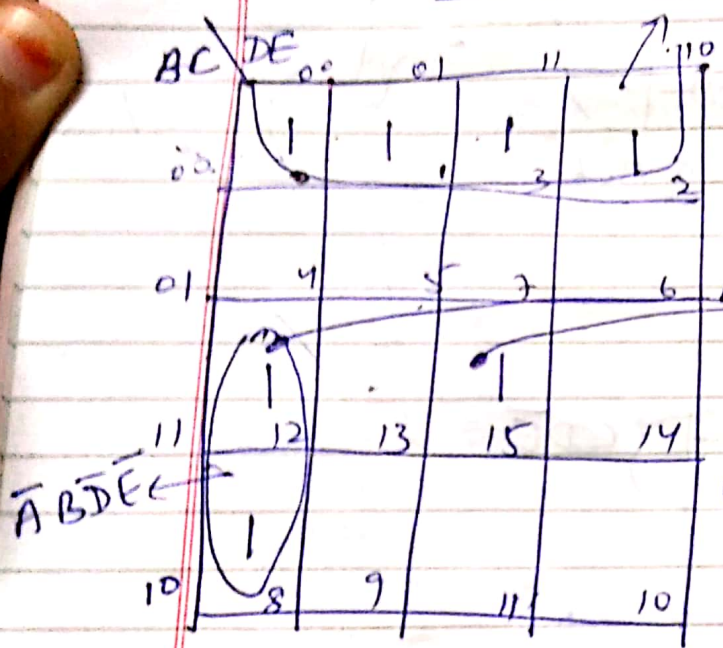 AC DE 00 01 11 10
00 1 1 1 1
1 3 2
01 4 5 7 6
1 1
11 12 13 15 14
A̅BD̅E̅
1
10 8 9 11 10